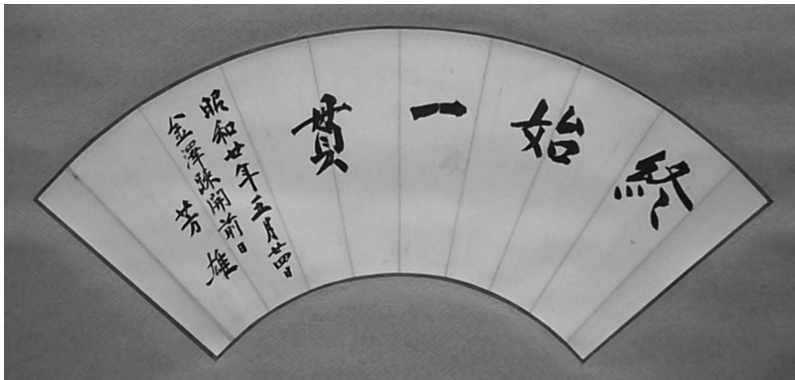 終始一貫
昭和廿年五月廿四日
金澤疎開前日
芳雄